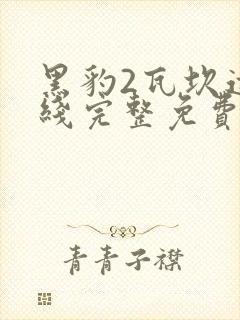 黑豹2瓦坎达
线完整免费
青青子襟